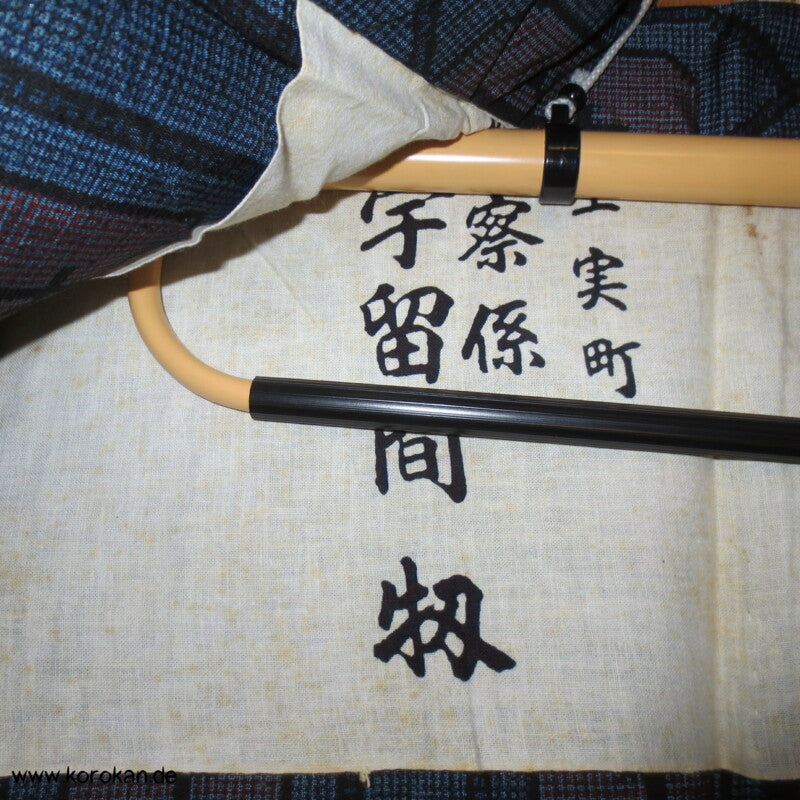 実町
察係
宇留間
www.korokan.de